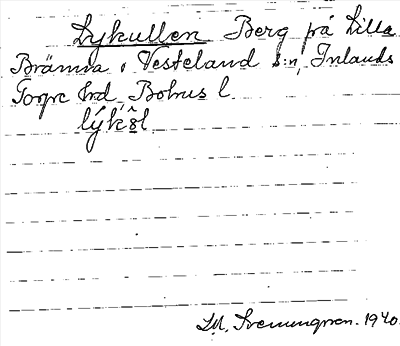 Lykullen Berg på Lilla
Brämna i Vesteland s:n, Inlands
Torpe hrd Bohus l.
lýkôl
Svenungsson. 1940.